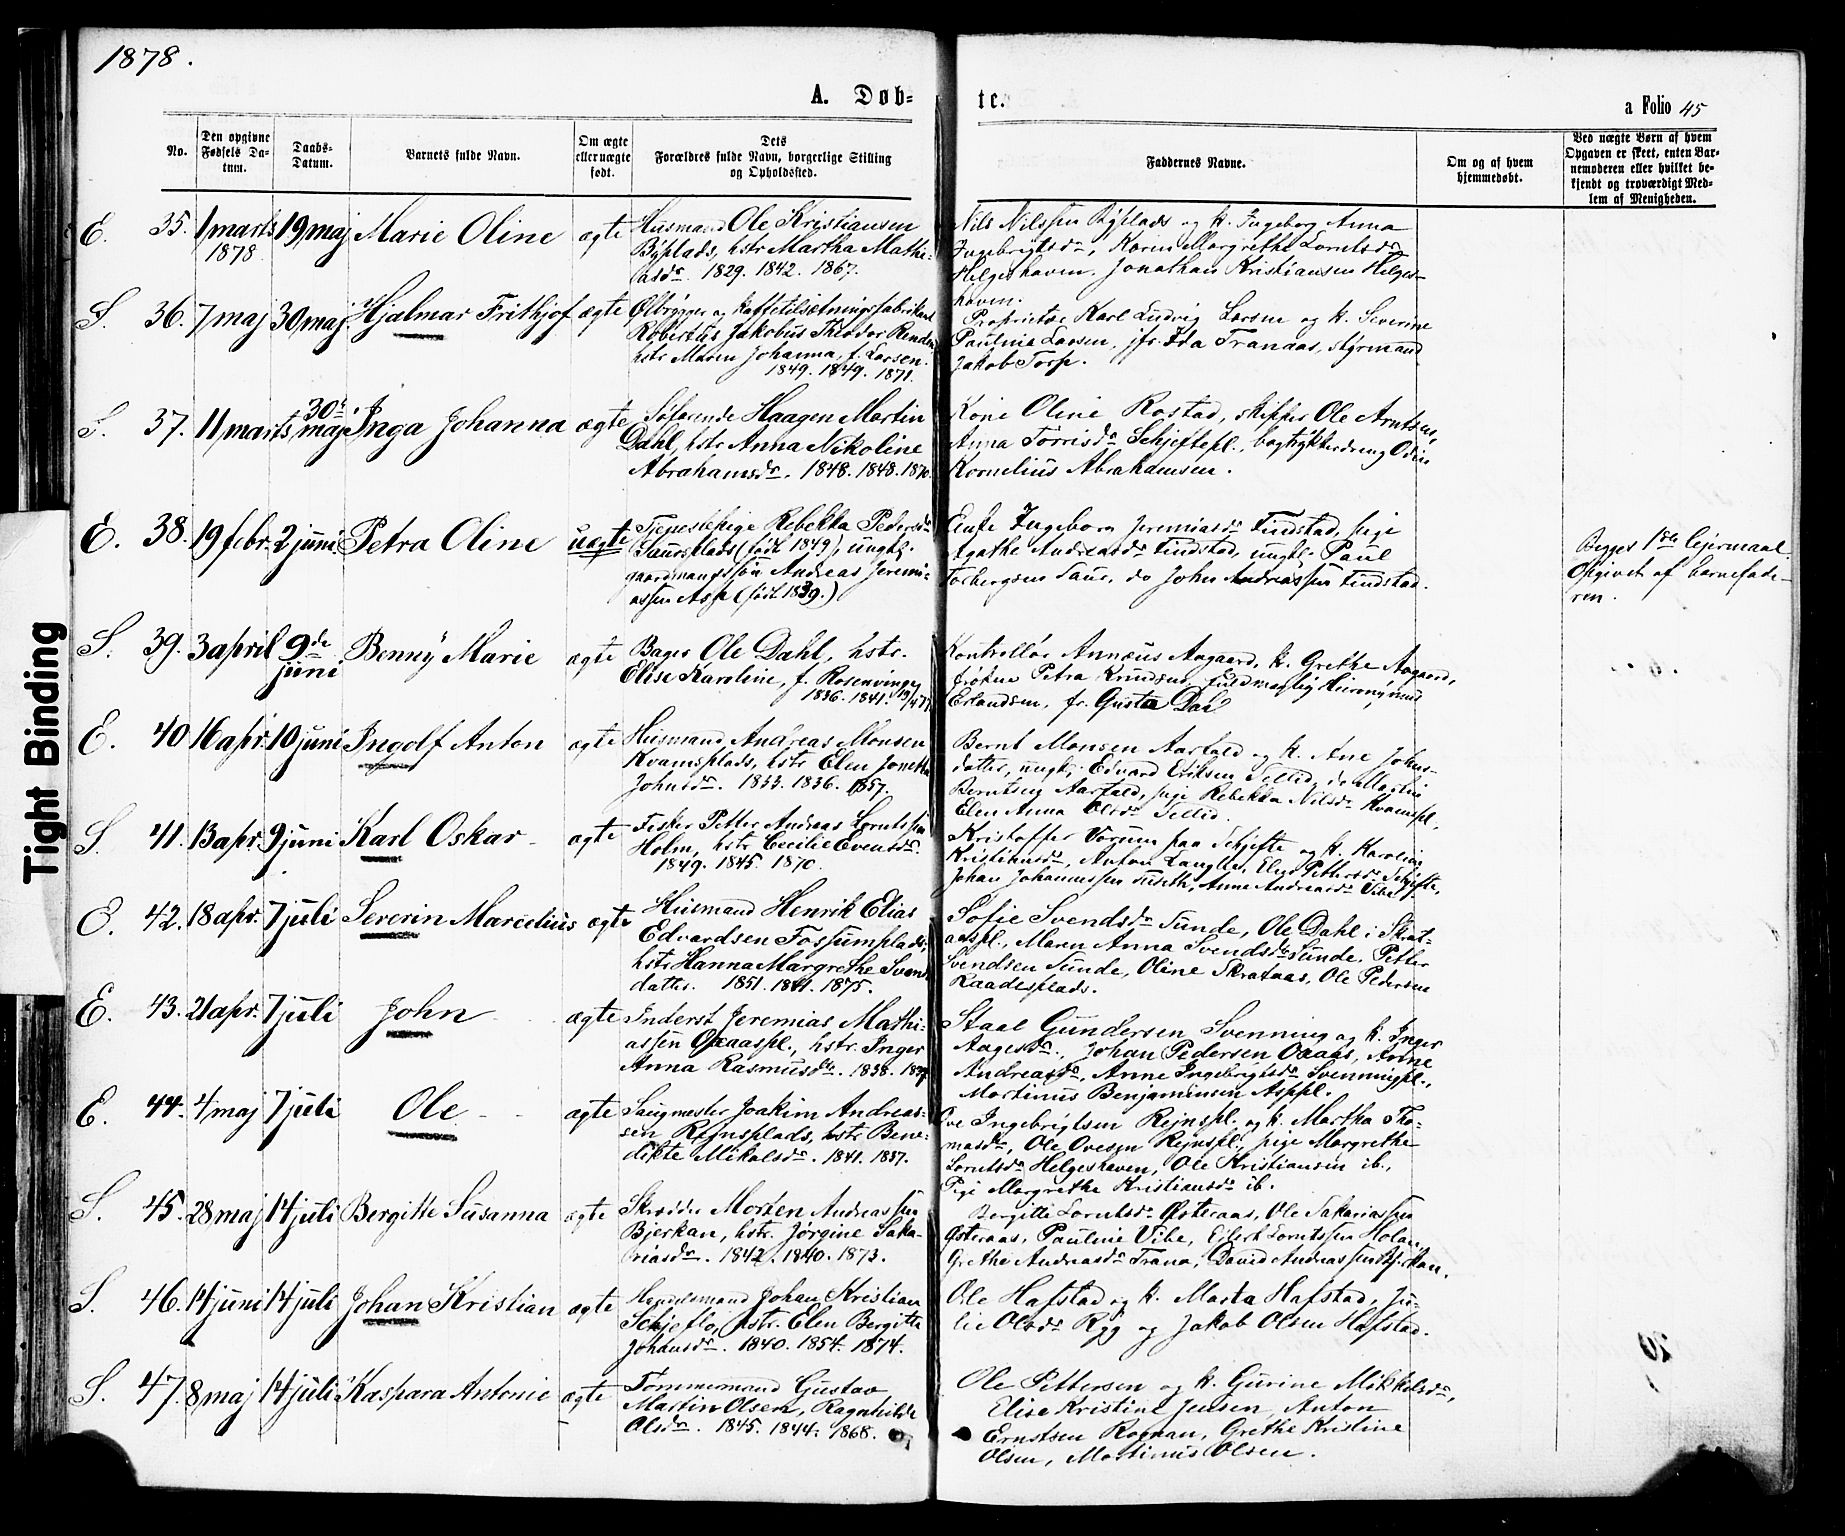 1878.
A. Døb-
te.
a Folio 45
No.
Den opgivne Fødsels Da-
tum.
Daabs-
Datum.
Barnets fulde Navn.
Om ægte
eller uægte
født.
Dets
Forældres fulde Navn, borgerlige Stilling
og Opholdssted.
Faddernes Navne.
Om og af hvem
hjemmedøbt.
Ved uægte Børn af hvem
Opgaven er skeet, enten Bar-
nemoderen eller hvilket be-
kjendt og troværdigt Med-
lem af Menigheden.
Tight Binding
E. 35. 1 marts 1878 19 maj Marie Oline ægte
Husmand Ole Kristiansen
Byplads, hstr Martha Mathi-
asdr. 1829. 1842. 1867.
Nils Nilssen Byplads og k. Ingeborg Anna
Ingebrigtsdr, Karen Margrethe Lorntsdr
Helgeshaven, Jonathan Kristiansen Helges-
haven.
S. 36. 7 maj 30 maj Hjalmar Frithjof ægte
Ølbrygger og kaffetilsætningsfabrikant
Robertus Jakobus Theodor
hstr Maren Johanna, f. Larsen.
1849. 1849. 1871.
Proprietær Karl Ludvig Larsen og k. Severine
Paulina Larsen, jfr. Ida Tranaas, styrmand
Jakob Torp.
S. 37. 11 marts 30te maj Inga Johanna ægte
Søfarende Haagen Martin
Dahl, hstr Anna Nikoline
Abrahamsdr. 1848. 1848. 1870.
Kone Oline Rostad, skipper Ole Arntsen,
Anna Torrisdr Schjeftepl.,
Kornelius Abrahamsen.
E. 38. 19 febr. 2 juni Petra Oline uægte
Tjenestepige Rebekka Pedersdr
(født 1849), ungk.
gaardmandssøn Andreas Jeremi-
assen Asp (født 1839.)
Enke Ingeborg Jeremiasdr Tindstad, pige
Agathe Andreasdr Tindstad, ungk. Paul
Torbergsen do John Andreassen Tindstad.
Begges 1ste lejermaal.
Opgivet af barnefade-
ren.
S. 39. 3 april 9de juni Benny Marie ægte
Bager Ole Dahl, hstr.
Elise Karoline, f. Rosenvinge
1836. 1841.
Kontrollør Annæus Aagaard, k. Grethe Aagaard,
frøken Petra Knudsen, fuldmægtig
Erlandsen, fr. Gusta Dahl
E. 40 16 apr. 10 juni Ingolf Anton ægte
Husmand Andreas Monsen
Kvamsplads, hstr Elen Jonetta
Johnsdr. 1833. 1836. 1857.
Bernt Monsen Aarstad og k. Ane Johns-
datter, ungk. Edvard Eriksen Tellid, do Martin
Berntsen Aarstad, pige Rebekka Nilsdr Kvamspl.,
Elen Anna Olsdr Tellid.
S. 41. 13 apr. 9 juni Karl Oskar ægte
Fisker Petter Andreas Lorntssen
Holm, hstr Cecilie Evensdr.
1849. 1845. 1870.
Kristoffer Vorum paa Schjefte og k. Karoline
Kristiansdr, Anton Langlle, Elen Pettersdr Schjefte,
Johan Johannessen Anne Andreasdr Vibe.
E. 42. 18 apr. 7 juli Severin Marcelius ægte
Husmand Henrik Elias
Edvardsen Fossumplads,
hstr Hanna Margrethe Svens-
datter. 1851. 1841. 1875.
Sofie Svendsdr Sunde, Ole Dahl i Skrat-
aaspl., Maren Anna Svendsdr Sunde, Petter
Svendsen Sunde, Oline Skrataas, Ole Pedersen
Raadesplads.
E. 43. 21 apr. 7 juli John ægte
Inderst Jeremias Mathi-
assen Oxaaspl., hstr. Inger
Anna Rasmusdtr. 1838.
Staal Gundersen Svenning og k. Inger
Aagesdr., Johan Pedersen Oxaas, Anne
Andreasdr, Anne Ingebrigtsdr Svenningpl.,
Martinus Benjaminsen Asppl.
E. 44. 4 maj 7 juli Ole ægte
Saugmester Joakim Andreas-
sen Rejnsplads, hstr Bene-
dikte Mikalsdr. 1841. 1837.
Ove Ingebrigtsen Rejnspl. og k. Martha Tho-
masdtr, Ole Ovesen Rejnspl., pige Margrethe
Lorntsdr Helgeshaven, Ole Kristiansen ib.,
Pige Margrethe Kristiansdr ib.
S. 45. 28 maj 14 juli Bergitte Susanna ægte
Skrædder Morten Andreassen
Bjerkan, hstr. Jørgine Saka-
riasdr. 1842. 1840. 1873.
Bergitte Lorntsdr Østeraas, Ole Sakariassen
Østeraas, Pauline Vibe, Eilert Lorntssen Holan,
Grethe Andreasdr Trana, David Andreassen Bjerkan.
S. 46. 14 juni 14 juli Johan Kristian ægte
Handelsmand Johan Kristian
Schjeflo, hstr. Elen Bergitte
Johansdr. 1840. 1854. 1874.
Ole Hafstad og k. Marta Hafstad, Ju-
lie Olsdr Rygg og Jakob Olsen Hafstad.
S. 47. 8 maj 14 juli Kaspara Antonie ægte
Tømmermand Gustav
Martin Olsen, Ragnhilde
Olsdr. 1845. 1844. 1868.
Ole Pettersen og k. Gurine Mikkelsdr,
Elise Kristine Jensen, Anton
Ernstsen Rognan, Grethe Kristine
Olsen, Martinus Olsen.